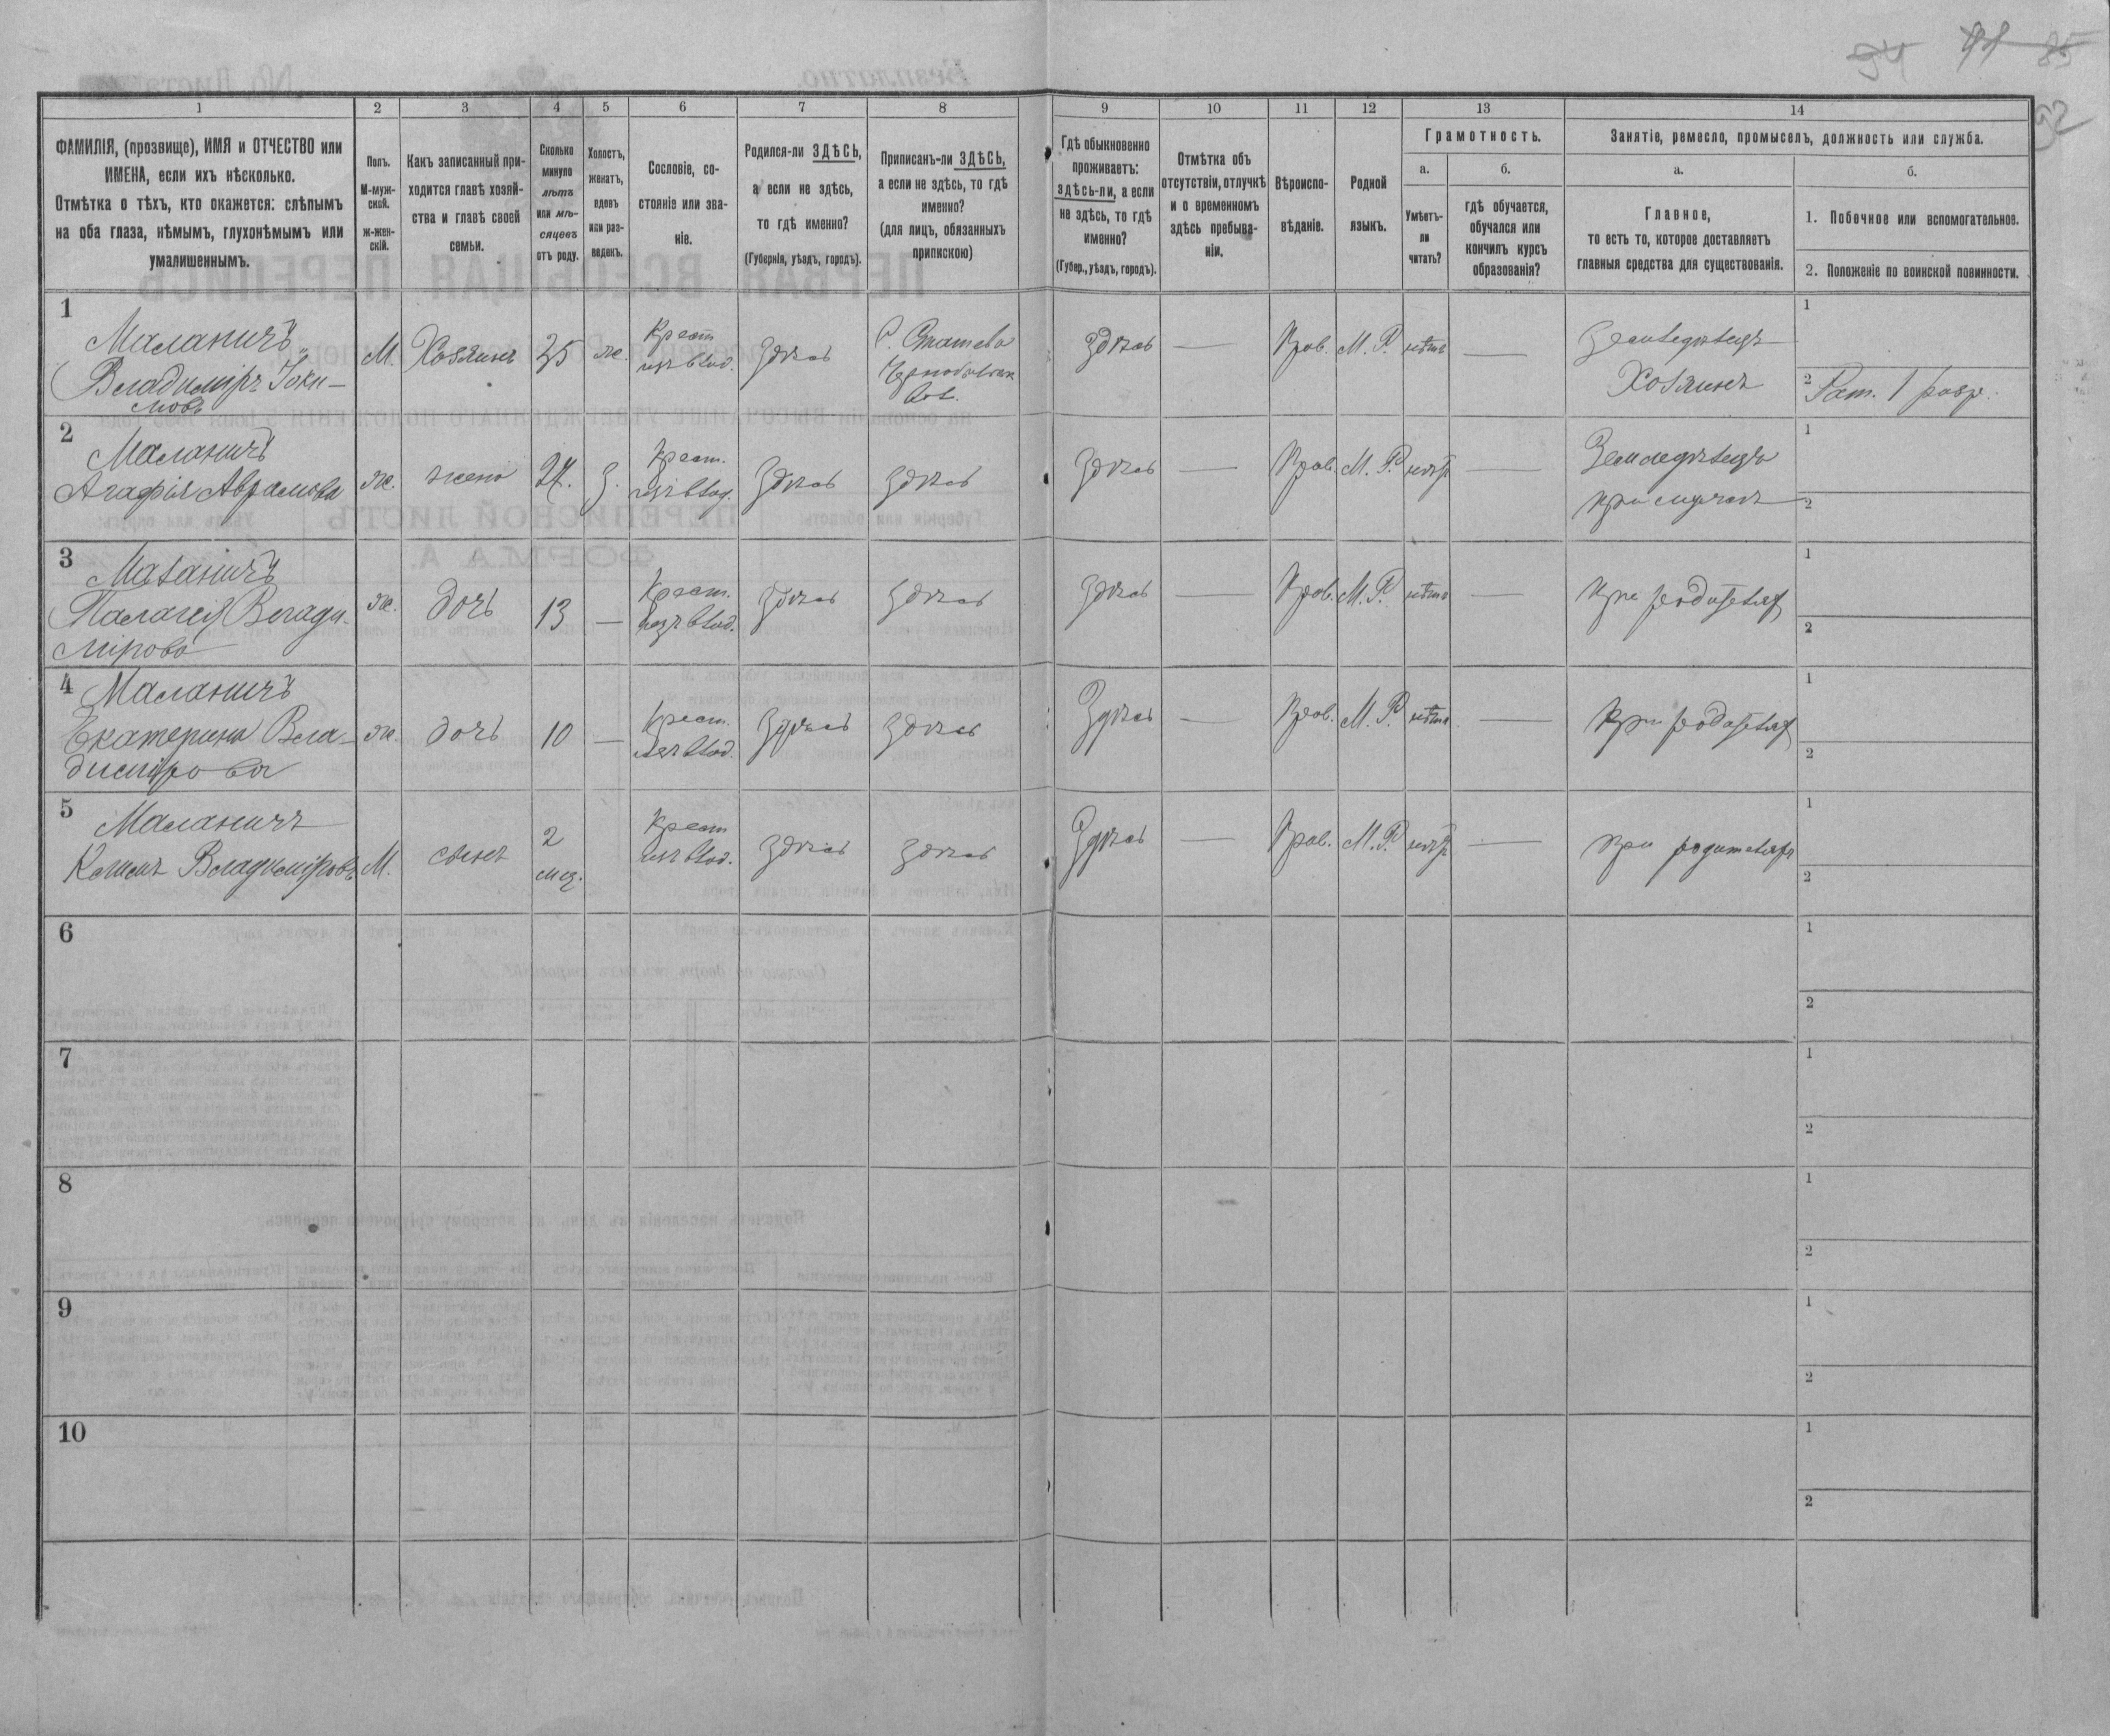 94 91 85
92
1 2 3 4 5 6 7 8 9 10 11 12 13 14
ФАМИЛІЯ, (прозвище), ИМЯ и ОТЧЕСТВО или
ИМЕНА, если ихъ нѣсколько.
Отмѣтка о тѣхъ, кто окажется: слѣпымъ
на оба глаза, нѣмымъ, глухонѣмымъ или
умалишеннымъ.
Полъ.
М-муж-
ской.
ж-жен-
скій.
Какъ записанный при-
ходится главѣ хозяй-
ства и главѣ своей
семьи.
Сколько
минуло
лѣтъ
или мѣ-
сяцевъ
отъ роду.
Холостъ,
женатъ,
вдовъ
или раз-
веденъ.
Сословіе, со-
стояніе или зва-
ніе.
Родился-ли ЗДѢСЬ,
а если не здѣсь,
то гдѣ именно?
(Губернія, уѣздъ, городъ).
Приписанъ-ли ЗДѢСЬ,
а если не здѣсь, то гдѣ
именно?
(для лицъ, обязанныхъ
припискою)
Гдѣ обыкновенно
проживаетъ:
здѣсь-ли, а если
не здѣсь, то гдѣ
именно?
(Губер., уѣздъ, городъ).
Отмѣтка объ
отсутствіи, отлучкѣ
и о временномъ
здѣсь пребыва-
ніи.
Вѣроиспо-
вѣданіе.
Родной
языкъ.
Грамотность.
а.
Умѣетъ-
ли
читать?
б.
гдѣ обучается,
обучался или
кончилъ курсъ
образованія?
Занятіе, ремесло, промыселъ, должность или служба.
а.
Главное,
то есть то, которое доставляетъ
главныя средства для существованія.
б.
1. Побочное или вспомогательное.
2. Положеніе по воинской повинности.
1
Маланичъ
Владиміръ Іоки-
мовъ
М. Хозяинъ 35 ж.
Крест.
изъ влад.
Здѣсь
С.
Здѣсь — Прав. М. Р. нѣтъ —
Земледѣлецъ
Хозяинъ
1
2 Рат. 1 разр.
2
Маланичъ
Агафія Аврамова
ж. жена 27. З.
Крест.
изъ влад.
Здѣсь здѣсь Здѣсь — Прав. М. Р. —
Земледѣлецъ
при мужѣ
1
2
3
Маланичъ
Палагея Влади-
мірова
ж. дочь 13 —
Крест.
изъ влад.
Здѣсь здѣсь Здѣсь — Прав. М. Р. нѣтъ —
При родителяхъ
1
2
4
Маланичъ
Екатерина Вла-
димірова
ж. дочь 10 —
Крест.
изъ влад.
Здѣсь здѣсь Здѣсь — Прав. М. Р. нѣтъ —
При родителях
1
2
5
Маланичъ
Владиміровъ
М. сынъ
2
мц.
Крест
изъ влад.
Здѣсь здѣсь Здѣсь — Прав. М. Р. —
При родителях
1
2
6
1
2
7
1
2
8
1
2
9
1
2
10
1
2